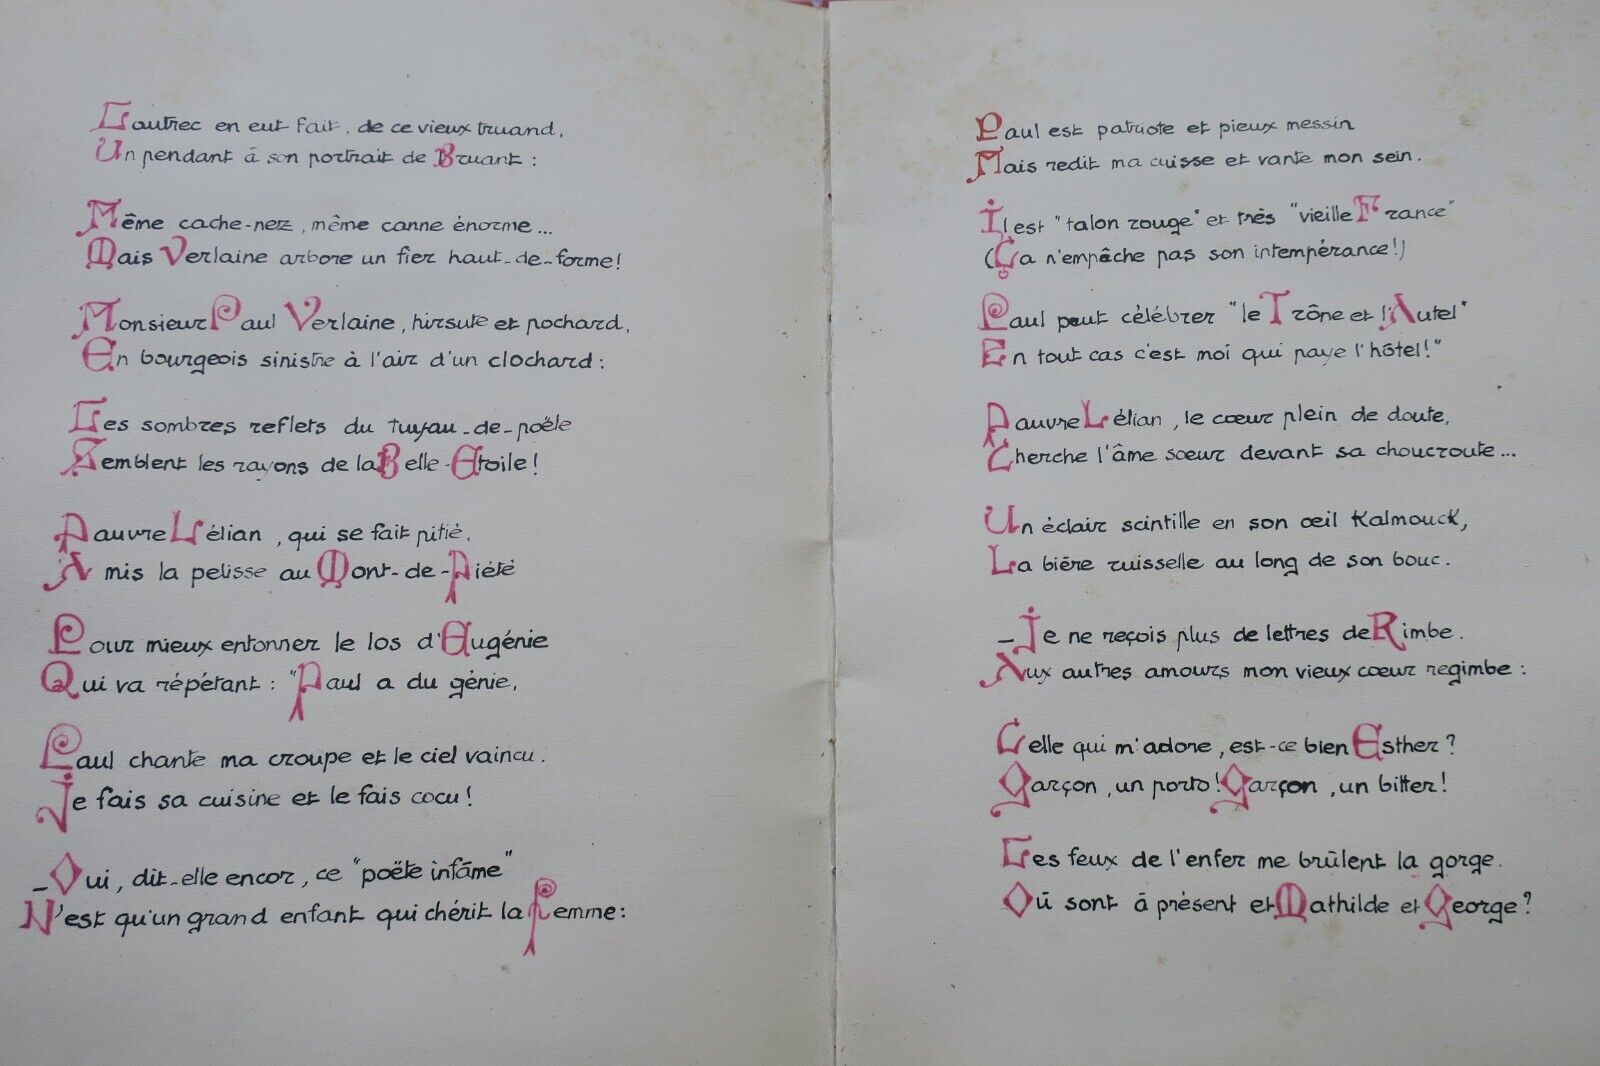 Lautrec en eut fait, de ce vieux truand,
Un pendant à son portrait de Bruant :
Même cache-nez, même canne énorme...
Mais Verlaine arbore un fier haut-de-forme!
Monsieur Paul Verlaine, hirsute et pochard,
En bourgeois sinistre à l'air d'un clochard :
Les sombres reflets du tuyau-de-poële
Semblent les rayons de la Belle-Etoile!
Pauvre Lélian, qui se fait pitié,
A mis la pelisse au Mont-de-Piété
Pour mieux entonner le los d'Eugénie
Qui va répétant : "Paul a du génie,
Paul chante ma croupe et le ciel vaincu.
Je fais sa cuisine et le fais cocu!
_Oui, dit-elle encor, ce "poëte infâme"
N'est qu'un grand enfant qui chérit la Femme:
Paul est patriote et pieux messin
Mais redit ma cuisse et vante mon sein.
Il est "talon rouge" et très "vieille France"
(Ça n'empêche pas son intempérance!)
Paul peut célébrer "le Trône et l'Autel"
En tout cas c'est moi qui paye l'hôtel!"
Pauvre Lélian, le cœur plein de doute,
Cherche l'âme sœur devant sa choucroute...
Un éclair scintille en son œil Kalmouck,
La bière ruisselle au long de son bouc.
_Je ne reçois plus de lettres de Rimbe.
Aux autres amours mon vieux cœur regimbe :
Celle qui m'adore, est-ce bien Esther?
Garçon, un porto! Garçon, un bitter!
Les feux de l'enfer me brûlent la gorge.
Où sont à présent et Mathilde et George?